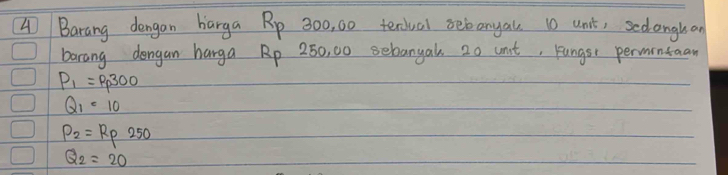 4 Barang dengan harga Rp 300,00 terdual sebanyak 10 unit, sedangkan
barang dengan harga Rp 250,00 sebanyak 20 unit. Fungsi permintaan
P1 = Rp300
Q1 = 10
P2 = Rp 250
Q2 = 20